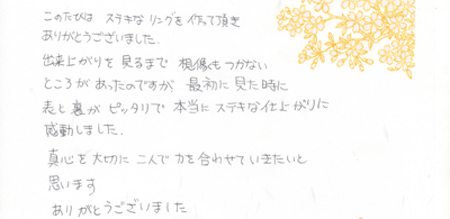 このたびは ステキな リングを 作って頂き
ありがとうございました.
出来上がりを 見るまで 想像も つかない
ところが あったのですが 最初に 見た時に
表と裏が ピッタリで 本当に ステキな仕上がりに
感動しました.
真心を 大切に こんで 力を合わせて いきたいと
思います
ありがとうございました